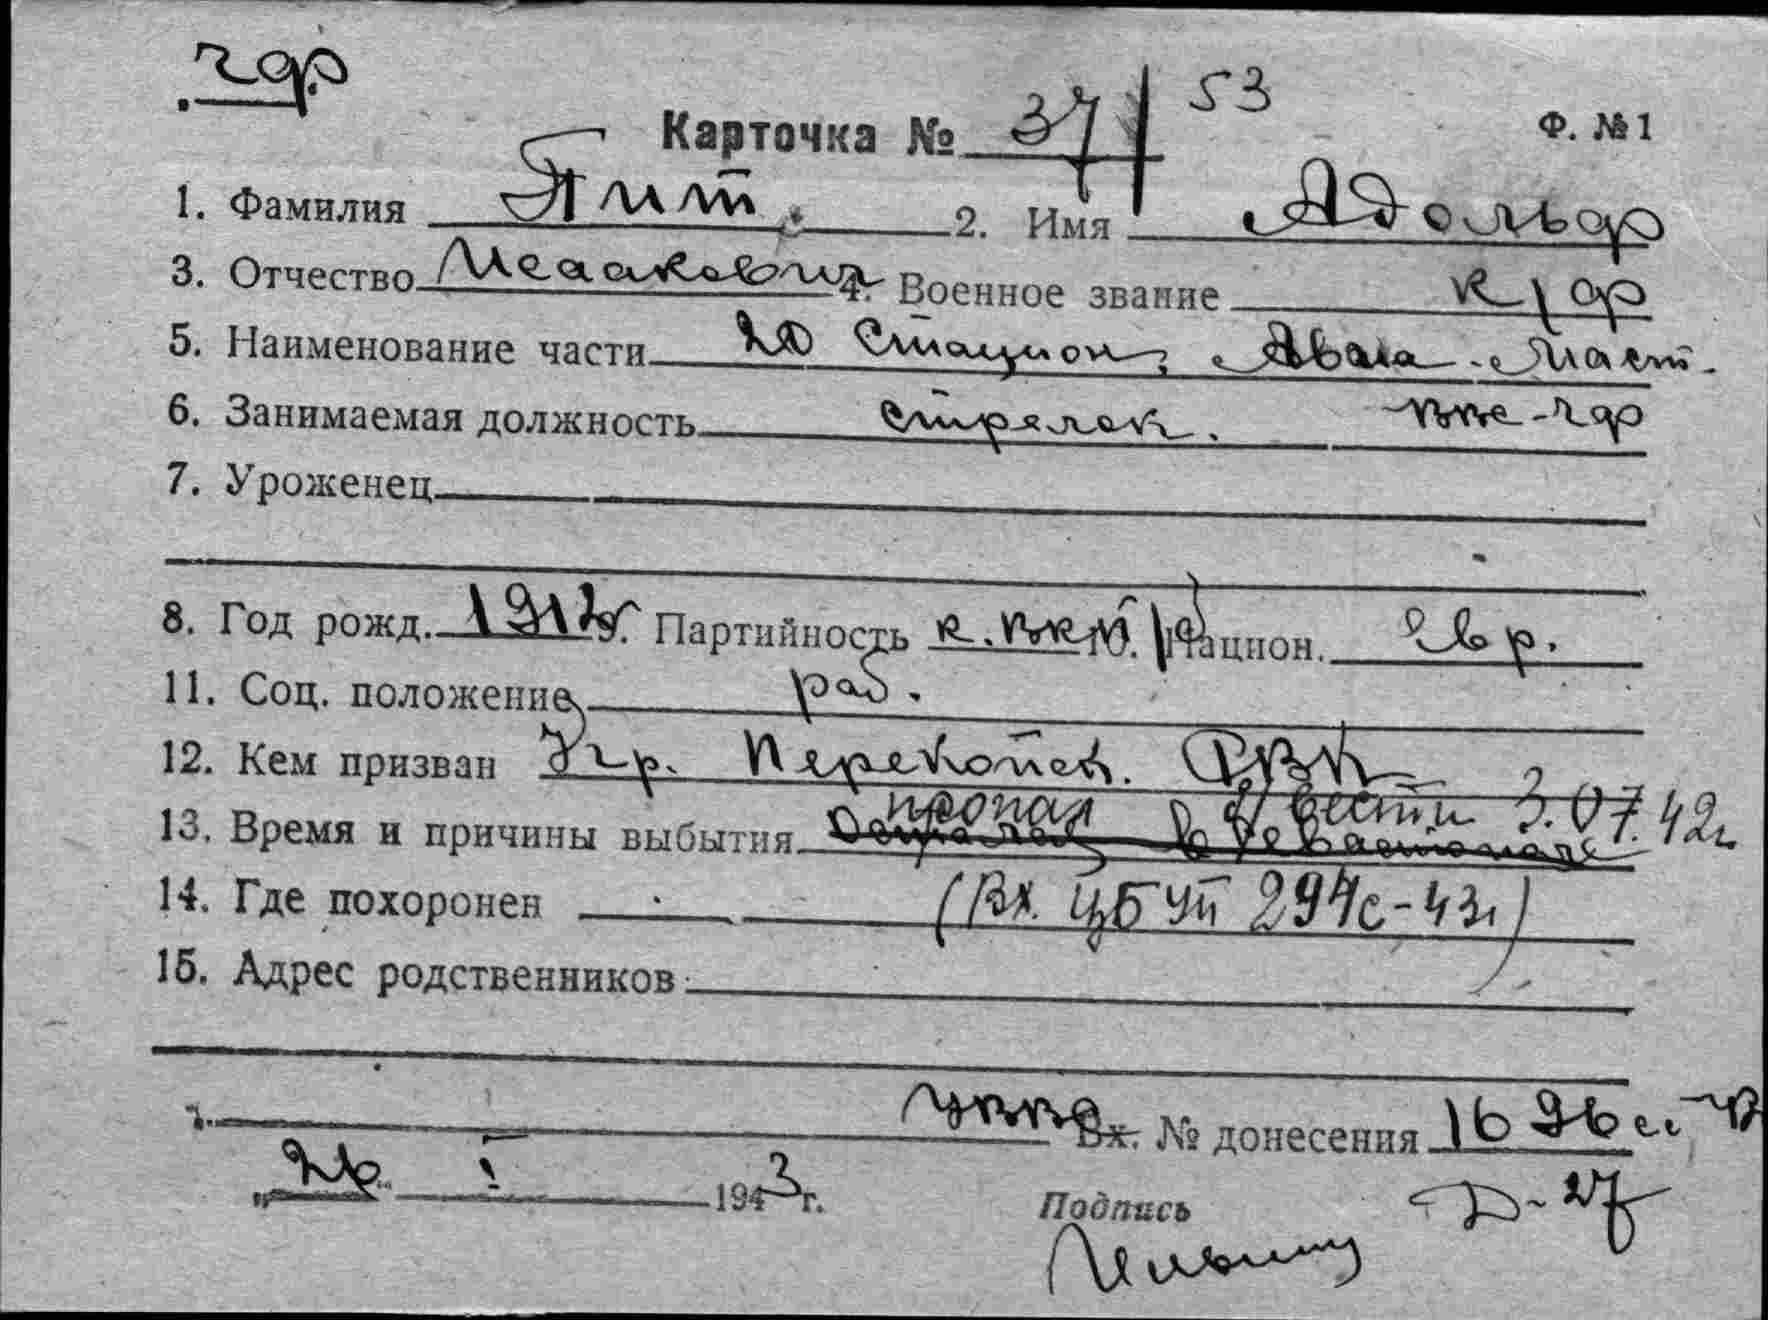 чф
Карточка № 37/53 Ф. №1
1. Фамилия Пит 2. Имя Адольф
3. Отчество Исаакович 4. Военное звание к/ф
5. Наименование части 20 Стацион. Авиа-Маст.
6. Занимаемая должность стрелок. ВВС-чф
7. Уроженец
8. Год рожд. 1912 г. Партийность к. ВКП/б Национ. Евр.
11. Соц. положение раб.
12. Кем призван Укр. Перекопск. РВК
пропал б/вести 3.07.42г
13. Время и причины выбытия Остался в Севастополе
14. Где похоронен (Вх. ЦБ УП 294с-43г)
15. Адрес родственников
г. Вх. № донесения 1696сс
„26" I 1943 г. Подпись Д-27